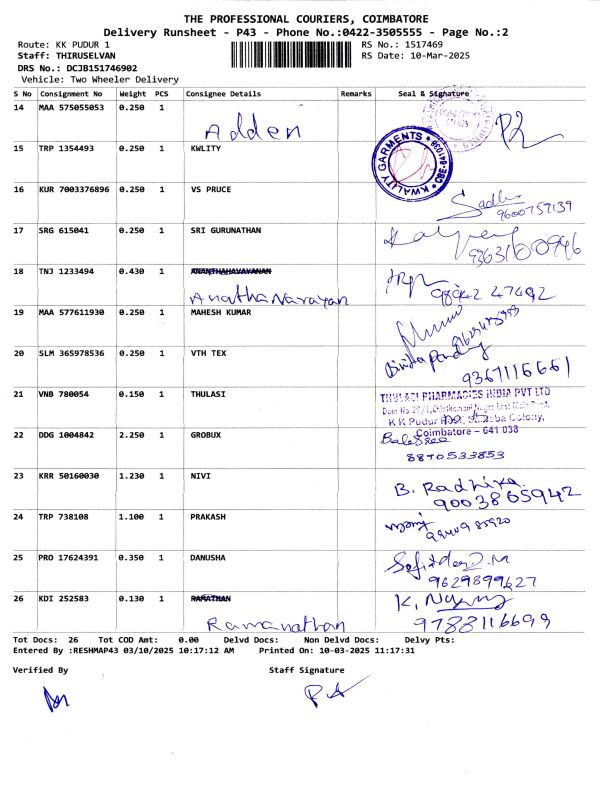 THE PROFESSIONAL COURIERS, COIMBATORE
Delivery Runsheet - P43 - Phone No.:0422-3505555 - Page No.:2
Route: KK PUDUR 1
RS No.: 1517469
Staff: THIRUSELVAN
RS Date: 10-Mar-2025
DRS No.: DCJB151746902
Vehicle: Two Wheeler Delivery
S No Consignment No Weight PCS Consignee Details Remarks Seal & Signature
14 MAA 575055053 0.250 1
Adden
15 TRP 1354493 0.250 1 KWLITY
KWALITY GARMENTS
CBE-641038
16 KUR 7003376896 0.250 1 VS PRUCE
9600757139
17 SRG 615041 0.250 1 SRI GURUNATHAN
9363100946
18 TNJ 1233494 0.430 1 ANANTHAHAVAYANAN
Anatha Narayan
19 MAA 577611930 0.250 1 MAHESH KUMAR
20 SLM 365978536 0.250 1 VTH TEX
9367116661
21 VNB 780054 0.150 1 THULASI
THULASI PHARMACIES INDIA PVT LTD
K K Pudur Colony,
Coimbatore - 641 038
22 DDG 1004842 2.250 1 GROBUX
8870533853
23 KRR 50160030 1.230 1 NIVI
B. Radhika
9003865942
24 TRP 738108 1.100 1 PRAKASH
25 PRO 17624391 0.350 1 DANUSHA
9629899627
26 KDI 252583 0.130 1 RAMATHAN
Ramanathan
9788116699
Tot Docs: 26 Tot COD Amt: 0.00 Delvd Docs: Non Delvd Docs: Delvy Pts:
Entered By :RESHMAP43 03/10/2025 10:17:12 AM Printed On: 10-03-2025 11:17:31
Verified By
Staff Signature